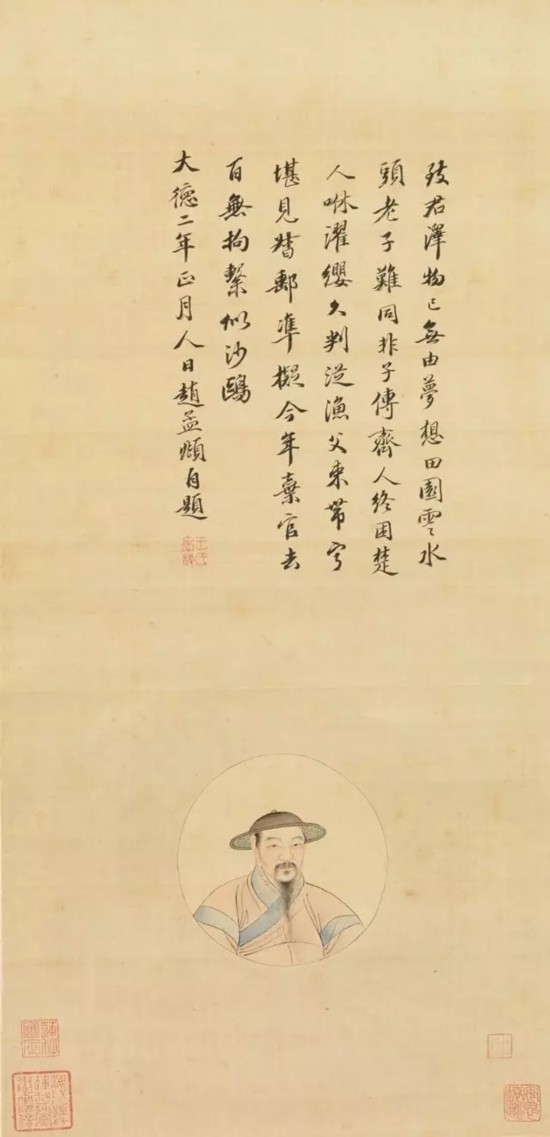 致君澤物已無由夢想田園雲水
頭老子難同非子傳齊人終困楚
人咻濯纓久判從漁父束帶寧
堪見督郵凖擬今年棄官去
百無拘繫似沙鷗
大德二年正月人日趙孟頫自題